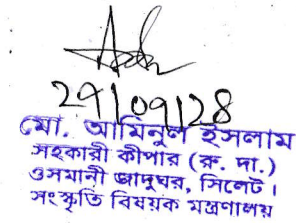 ২৭/০৭/২৪
মো. আমিনুল ইসলাম
সহকারী কীপার (রু. দা.)
ওসমানী জাদুঘর, সিলেট।
সংস্কৃতি বিষয়ক মন্ত্রণালয়